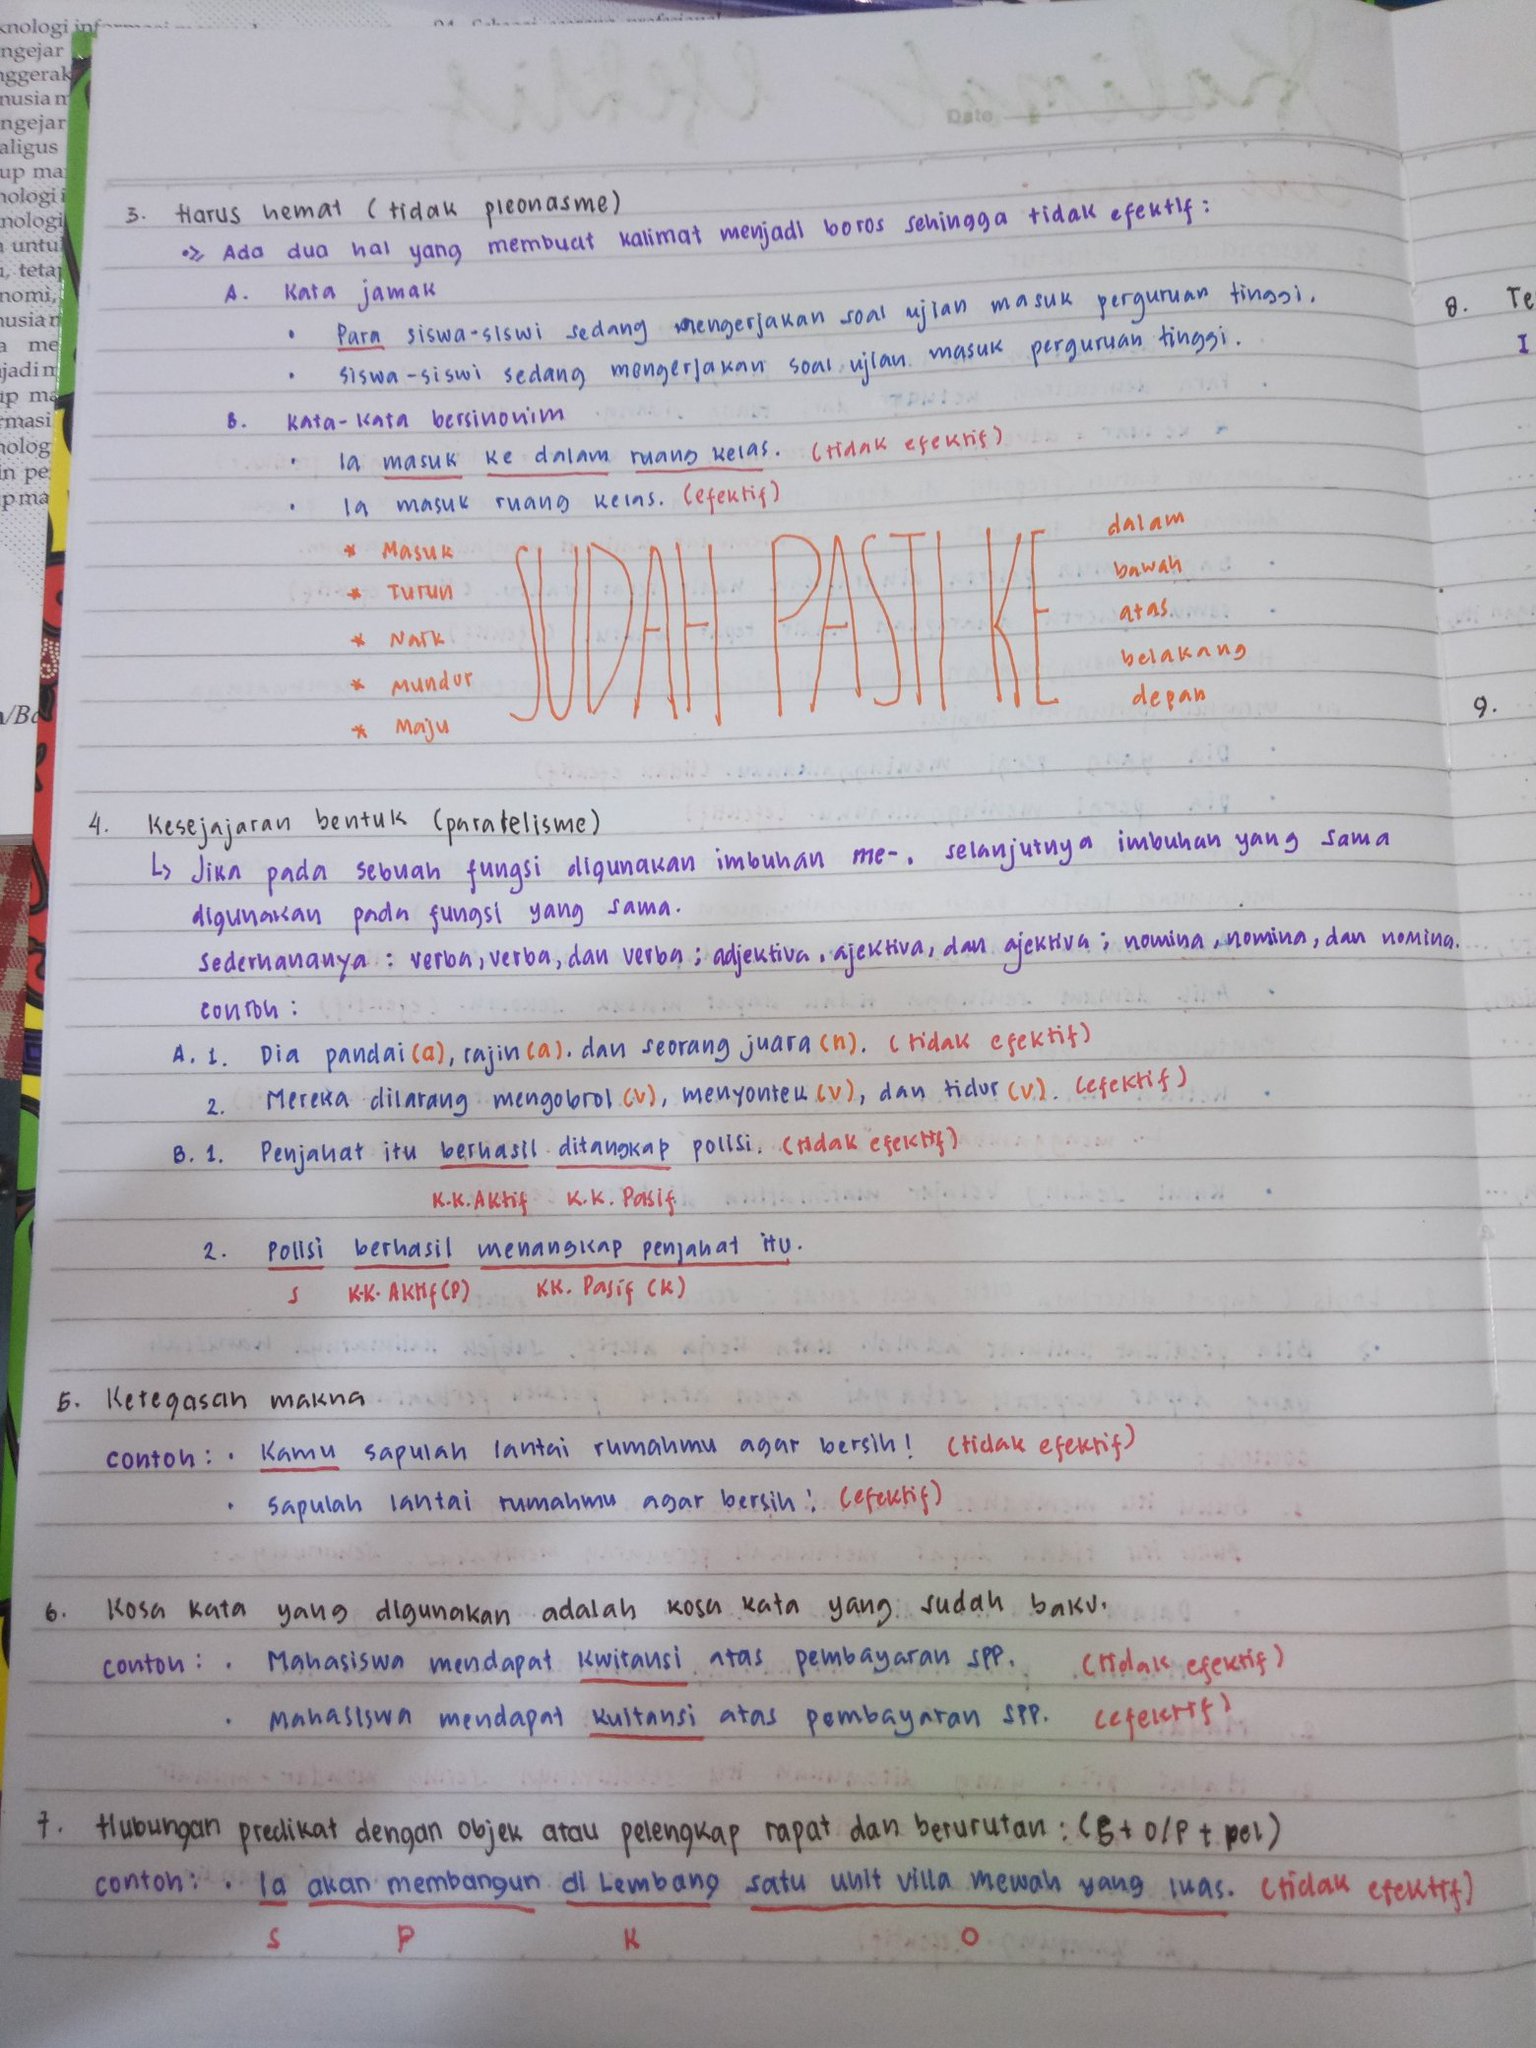 knologi informasi
ngejar
nggerak
nusia m
ngejar
aligus
up ma
nologi i
nologi
untu
, tetap
nomi,
nusia r
a me
jadi n
up ma
rmasi
nolog
in pe
p ma
/Ba
Date
3. Harus hemat (tidak pleonasme)
Ada dua hal yang membuat kalimat menjadi boros sehingga tidak efektif:
A. Kata jamak
• Para siswa-siswi sedang mengerjakan soal ujian masuk perguruan tinggi.
• Siswa-siswi sedang mengerjakan soal ujian masuk perguruan tinggi.
B. Kata-kata bersinonim
• Ia masuk ke dalam ruang kelas. (tidak efektif)
• Ia masuk ruang kelas. (efektif)
* Masuk
* Turun
* Naik
* Mundur
* Maju
SUDAH PASTI KE
dalam
bawah
atas
belakang
depan
4. Kesejajaran bentuk (paralelisme)
↳ Jika pada sebuah fungsi digunakan imbuhan me-, selanjutnya imbuhan yang sama
digunakan pada fungsi yang sama.
Sederhananya : verba, verba, dan verba ; adjektiva, ajektiva, dan ajektiva ; nomina, nomina, dan nomina.
Contoh :
A. 1. Dia pandai (a), rajin (a). dan seorang juara (n). (tidak efektif)
2. Mereka dilarang mengobrol (v), menyontek (v), dan tidur (v). (efektif)
B. 1. Penjahat itu berhasil ditangkap polisi. (tidak efektif)
K.K. Aktif K.K. Pasif
2. Polisi berhasil menangkap penjahat itu.
S K.K. Aktif (P) KK. Pasif (K)
5. Ketegasan makna
contoh : • Kamu sapulah lantai rumahmu agar bersih! (tidak efektif)
• Sapulah lantai rumahmu agar bersih! (efektif)
6. Kosa kata yang digunakan adalah kosa kata yang sudah baku.
contoh : • Mahasiswa mendapat kwitansi atas pembayaran SPP. (tidak efektif)
• Mahasiswa mendapat kuitansi atas pembayaran SPP. (efektif)
7. Hubungan predikat dengan objek atau pelengkap rapat dan berurutan : ( + O/P + pel)
contoh : • Ia akan membangun di Lembang satu unit villa mewah yang luas. (tidak efektif)
S P K O
8. Te
I
9.